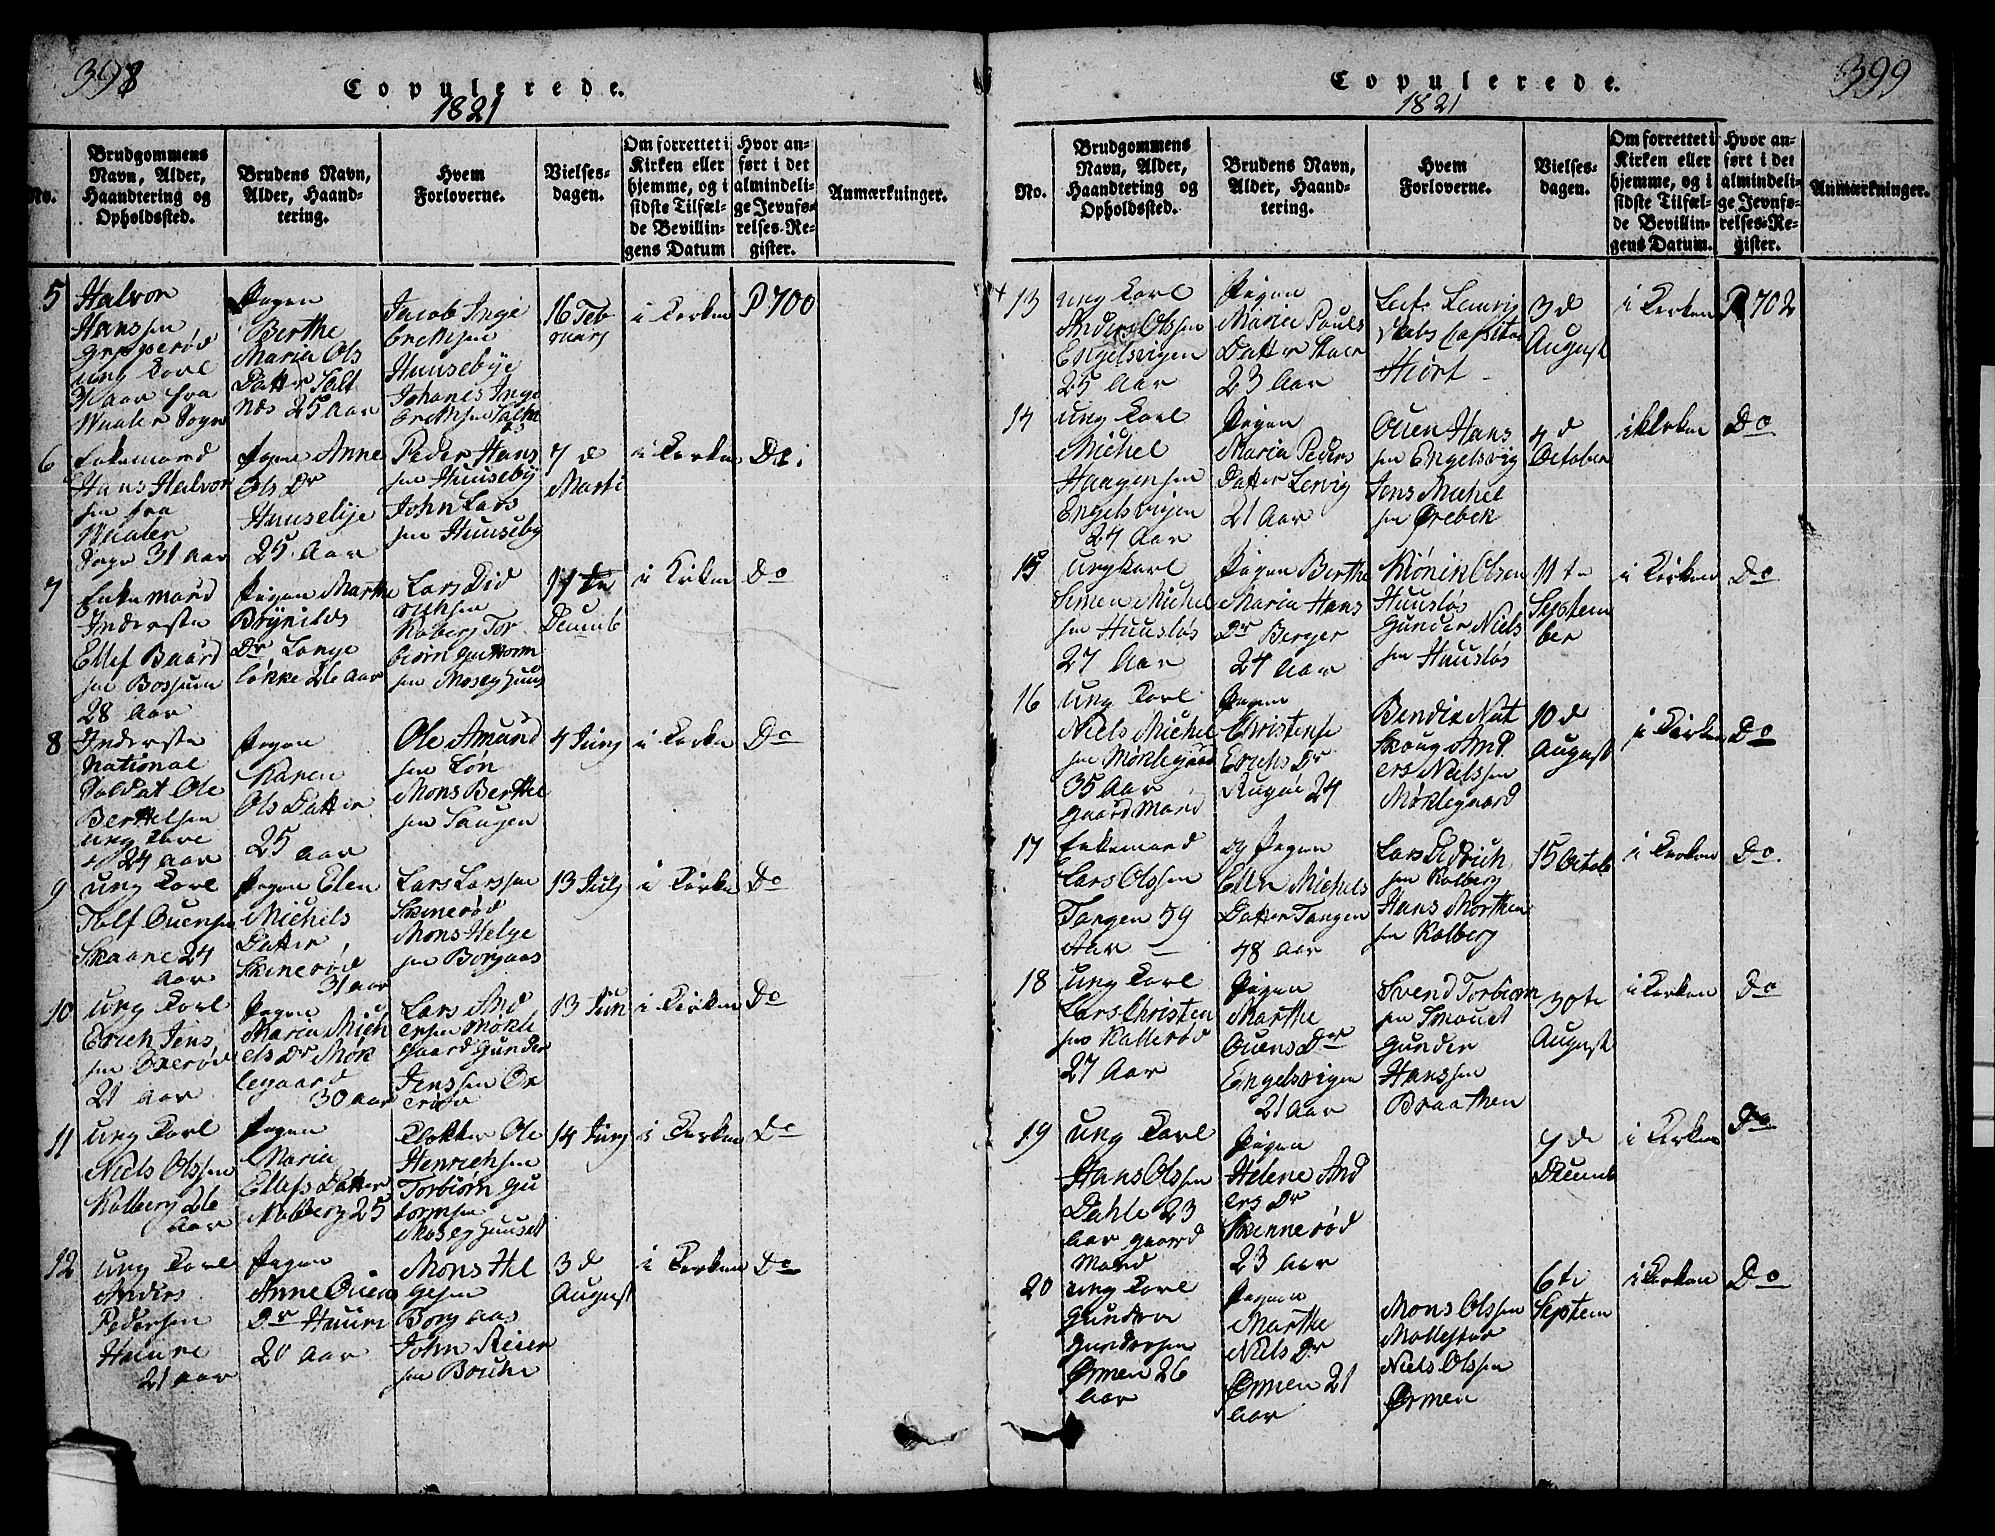 398
Copulerede.
1821
No.
Brudgommens
Navn, Alder,
Haandtering og
Opholdssted.
Brudens Navn,
Alder, Haand-
tering.
Hvem
Forloverne.
Vielses-
dagen.
Om forrettet i
Kirken eller
hjemme, og i
sidste Tilfæl-
de Bevillin-
gens Datum
Hvor an-
ført i det
almindeli-
ge Jevnfø-
relses-Re-
gister.
Anmærkninger.
5
Halvor
Hanssen
ung Karl
fra
Waaler Sogn
Pigen
Berthe
Maria Ols
Datter Salt
næs 25 Aar
Jacob Inge
brethsen
Huusebye
Johanes Inge
brethsen
16 Feb
ruarj
i Kirken
P 700
6
Enkemand
Hans Halvor
sen fra
Waaler
Sogn 31 aar
Pigen Anne
Ols Dr
Huusebye
25 Aar
Peder Hans
sen Huuseby
John Lars
sen Huuseby
7 d
Marti
i Kirken
Do
7
Enkemand
Inderste
Ellef Baard
sen Bossum
28 Aar
Pigen Marthe
Brynilds
Dr Lange
løkke 26 Aar
Lars Did
richsen
Kolberg Tor
biørn Guttorm
sen Moseghuus
Decemb
i Kirken
Do
8
Inderste
National
Soldat Ole
Berthelsen
ung Karl
24 aar
Pigen
Karen
Ols Datter
25 aar
Ole Amund
sen Løn
Mons Berthel
sen Saugen
4 Junj
i Kirken
Do
9
ung Karl
Tolf Ouensen
Skaane 24
aar
Pigen Elen
Michels
Datter
Skinerød
31 aar
Lars Larssen
Skinerød
Mons Helge
sen Borgaas
13 Julj
i Kirken
Do
10
ung Karl
Erich Jens
sen Oxerød
21 aar
Pigen
Maria Mich
els Dr Møk
legaard
30 aar
Lars And
ersen Møkle
gaard Gunder
Jenssen Ox
erød
13 Jun
i Kirken
Do
11
ung Karl
Niels Olssen
Kolberg 26
aar
Pigen
Maria
Ellefs Datter
Kolberg 25
Klokker Ole
Henrichsen
Torbiørn Gu
tormsen
Moseghuuset
14 Junj
i Kirken
Do
12
ung Karl
Anders
Pedersen
Huure
21 aar
Pigen
Anne Ouens
Dr Huure
20 aar
Mons Hel
gesen
Borgaas
John Reier
sen
3 d
August
i Kirken
Do
399
Copulerede.
1821
No.
Brudgommens
Navn, Alder,
Haandtering og
Opholdssted.
Brudens Navn,
Alder, Haand-
tering.
Hvem
Forloverne.
Vielses-
dagen.
Om forrettet i
Kirken eller
hjemme, og i
sidste Tilfæl-
de Bevillin-
gens Datum.
Hvor an-
ført i det
almindeli-
ge Jevnfø-
relses-Re-
gister.
Anmærkninger.
13
ung Karl
Anders Olssen
Engelsvigen
25 Aar
Pigen
Maria Pouls
Datter
23 Aar
Hiort
3 d
August
i Kirken
P 702
14
ung Karl
Michel
Haagensen
Engelsvigen
24 Aar
Pigen
Maria Peders
Datter Lervig
21 Aar
Ouen Hans
sen Engelsvig
Jens Michel
sen Ørebek
4 d
October
i Kirken
Do
15
ung Karl
Simen Michel
sen Huusløs
27 Aar
Pigen Berthe
Maria Hans
Dr Berger
24 Aar
Olsen
Huusløs
Gunder Niels
sen Huusløs
11 te
Septem
ber
i Kirken
Do
16
ung Karl
Niels Michel
sen Møklegaard
35 Aar
gaard Mand
Pigen
Christense
Erichs Dr
24
Bendix Nat
skoug And
ers Nielssen
Møklegaard
10 d
August
i Kirken
Do
17
Enkemand
Lars Olssen
Tangen 59
Aar
og Pigen
Ellen Michels
Datter Tangen
48 aar
Lars Didrich
sen Kolberg
Hans Morthen
sen Kolberg
15 Octob
i Kirken
Do.
18
ung Karl
Lars Christen
sen Kallerød
27 Aar
Pigen
Marthe
Ouens Dr
Engelsvigen
21 Aar
Svend Torbiørn
sen Smouet
Gunder
Hanssen
Braathen
30te
August
i Kirken
Do
19
ung Karl
Hans Olssen
Dahle 23
aar gaard
Mand
Pigen
Helene And
ers Dr
Skinnerød
23 aar
7 de
Decemb
i Kirken
Do
20
ung Karl
Gunder
Gundersen
Ørmen 26
Aar
Pigen
Marthe
Niels Dr
Ørmen 21
Aar
Mons Olssen
Niels Olssen
Ørmen
6te
Septem
i Kirken
Do